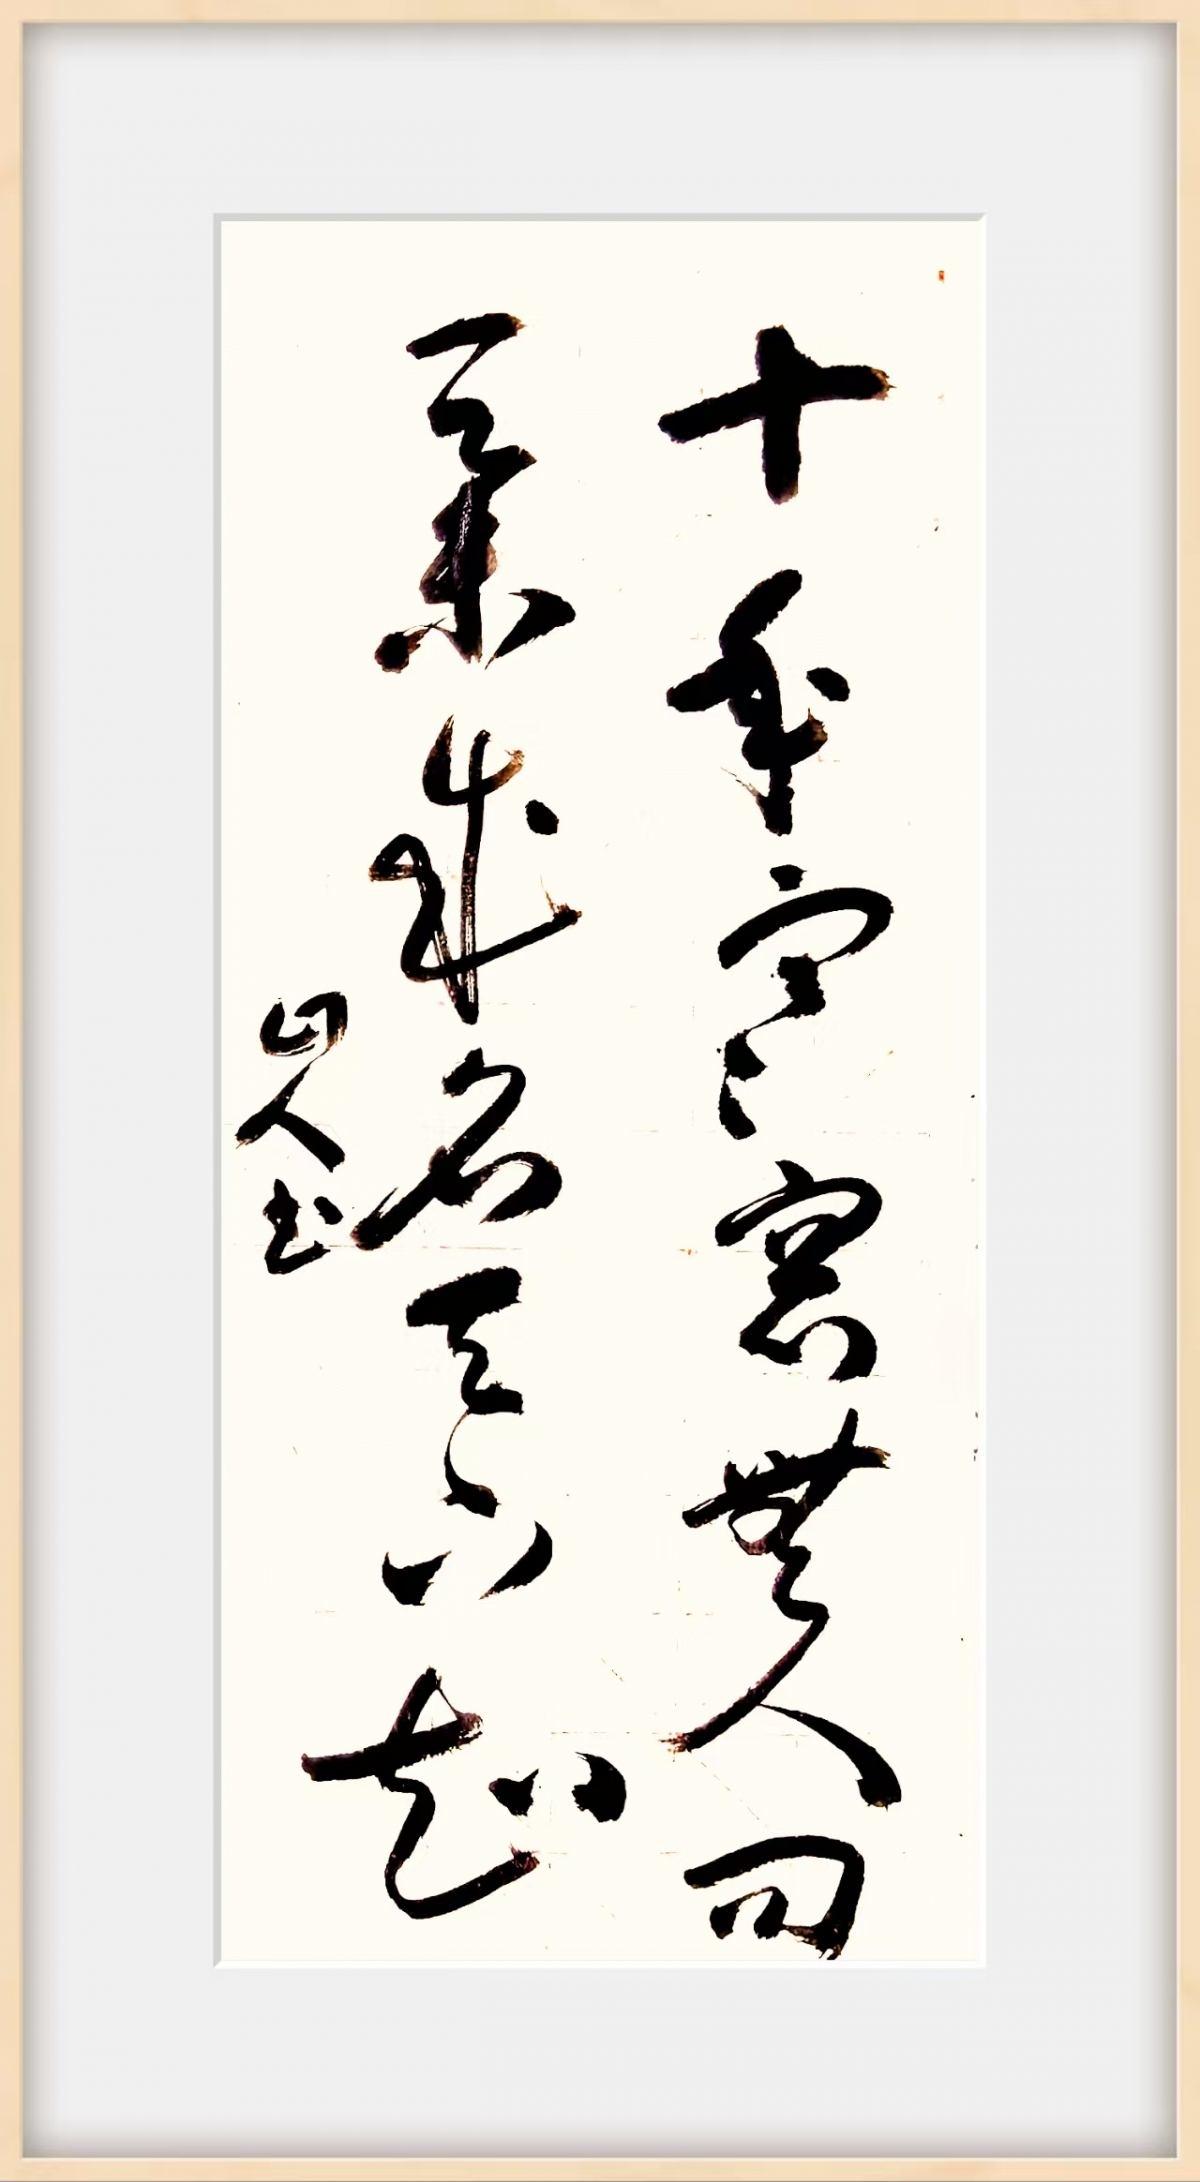 十年寒窗無人问
一举成名天下知
山人书